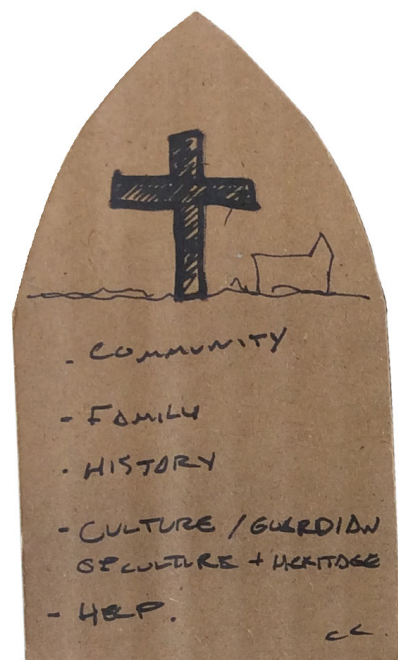 - COMMUNITY
- FAMILY
- HISTORY
- CULTURE / GUARDIAN
OF CULTURE + HERITAGE
- HELP.
CC.